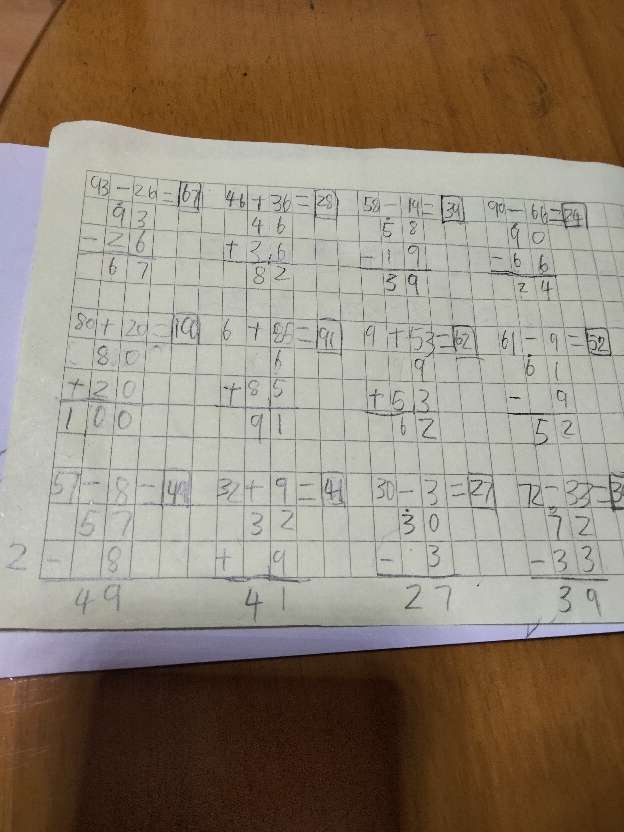 93-26=67 46+36=28 58-19=39 90-66=24
93 46 58 90
-26 +36 -19 -66
67 82 39 24
80+20=100 6+85=91 9+53=62 61-9=52
80 6 9 61
+20 +85 +53 -9
100 91 62 52
57-8=49 32+9=41 30-3=27 72-33=39
57 32 30 72
2 -8 +9 -3 -33
49 41 27 39